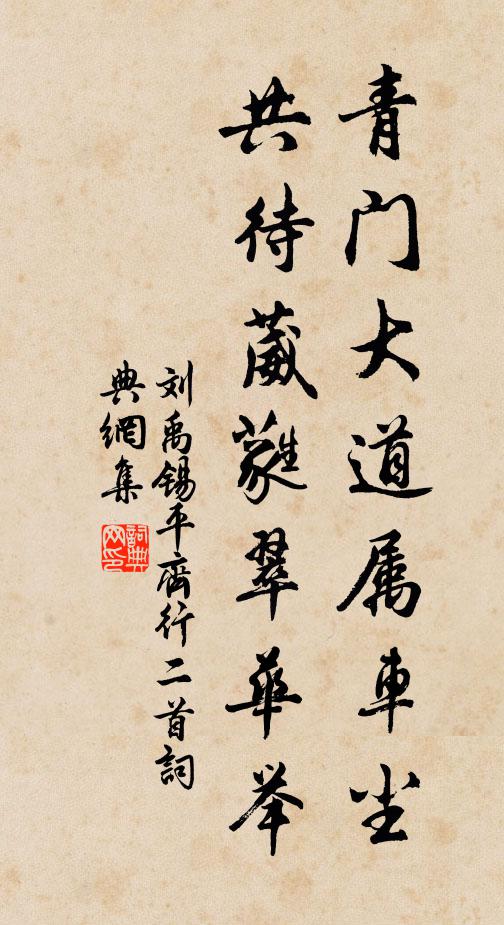 青门大道属车尘
共待葳蕤翠華举
刘禹锡平齊行二首詞
典網集
詞典
网印